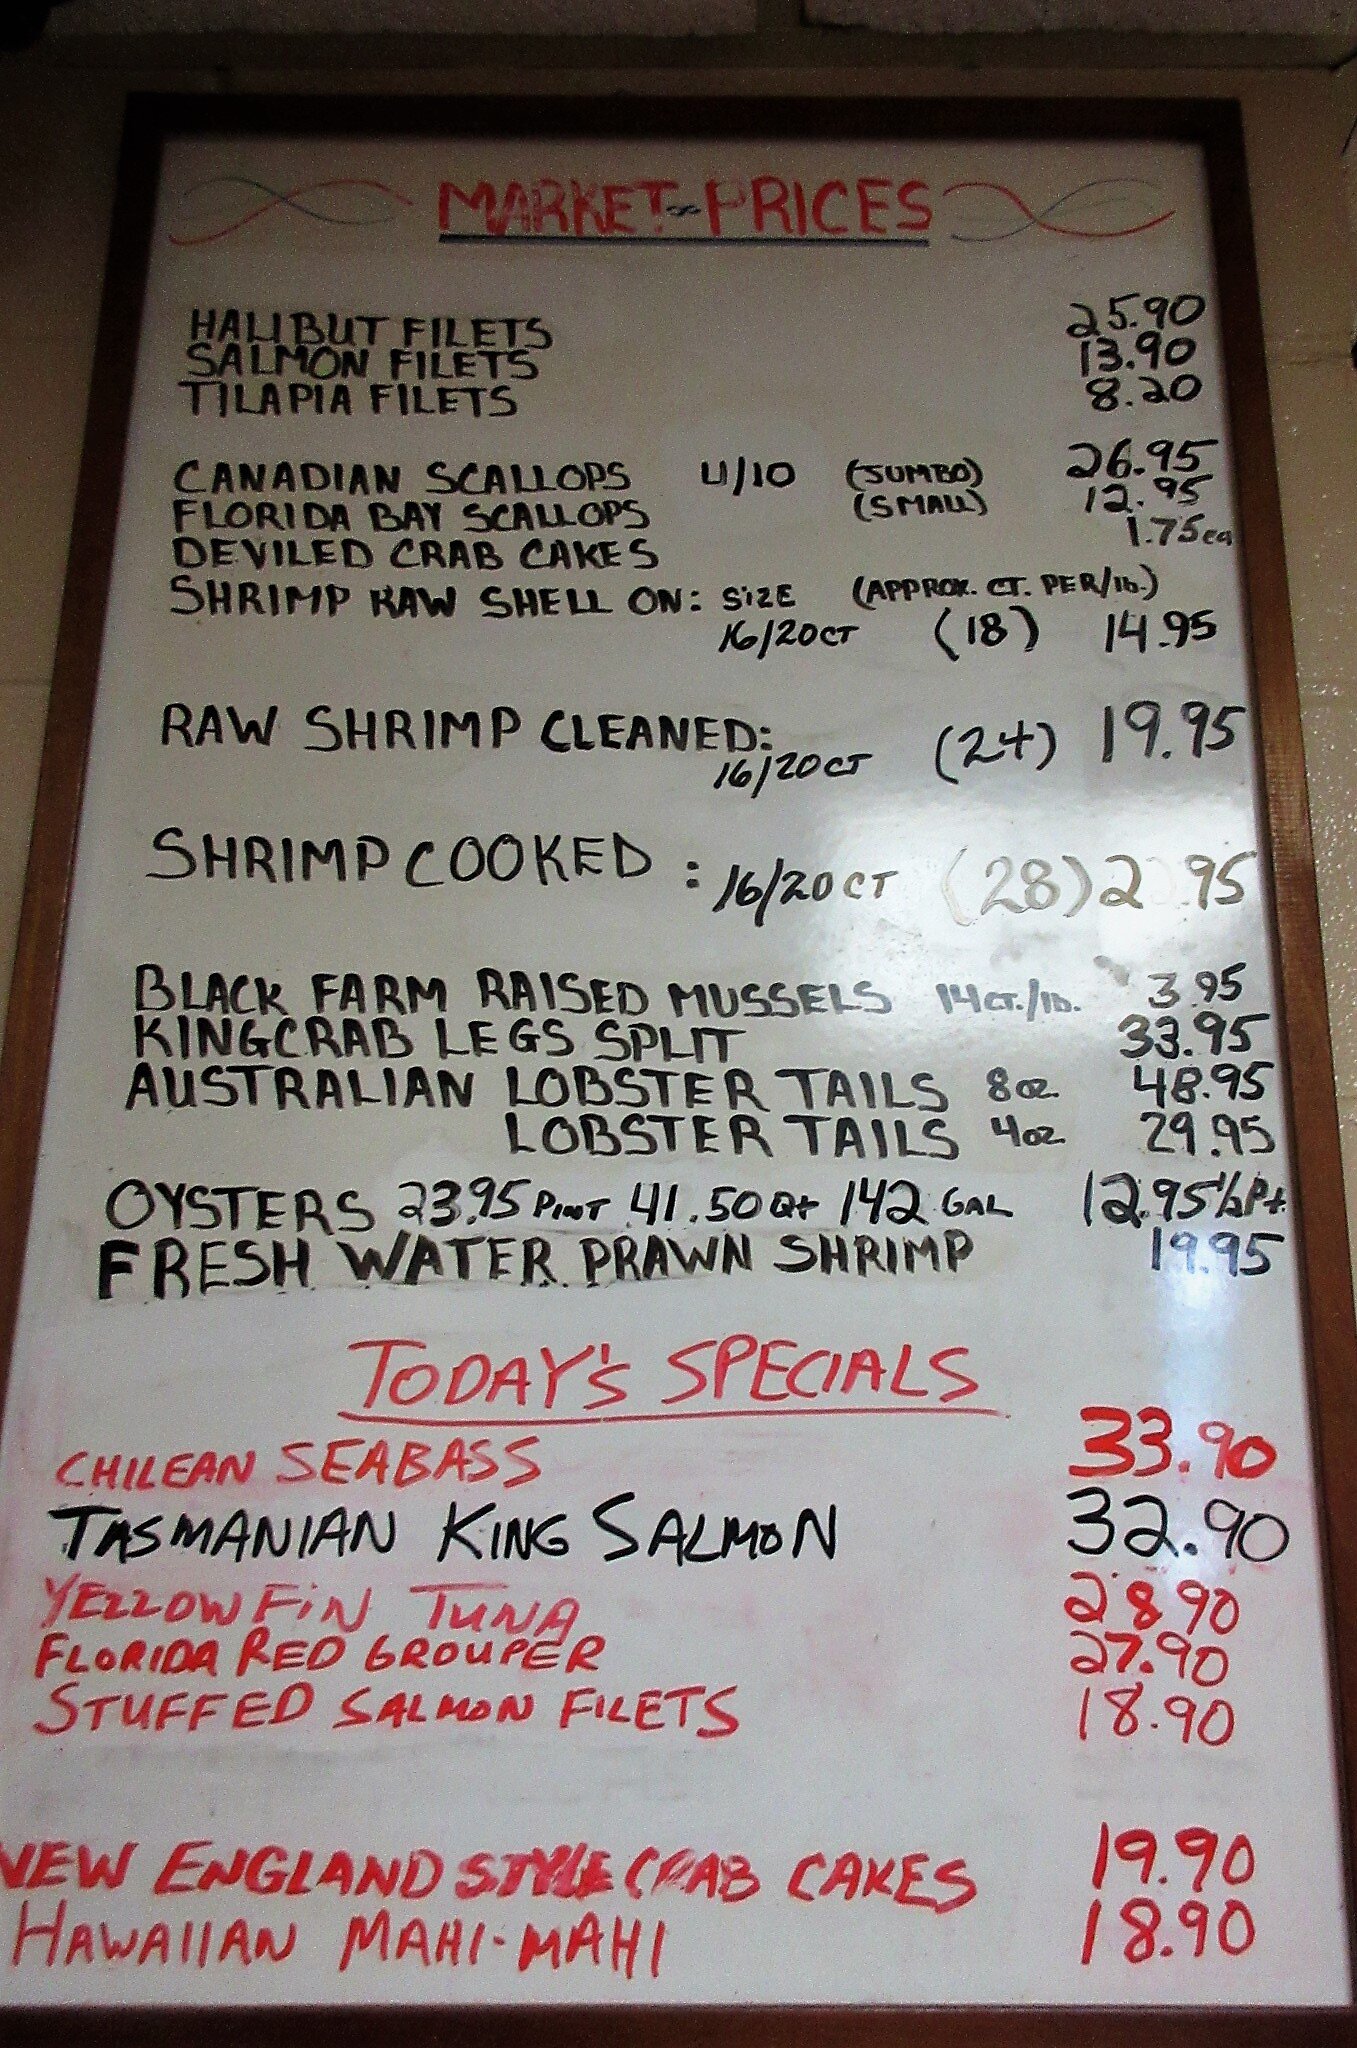 MARKET~PRICES
HALIBUT FILETS 25.90
SALMON FILETS 13.90
TILAPIA FILETS 8.20
CANADIAN SCALLOPS U/10 (JUMBO) 26.95
FLORIDA BAY SCALLOPS (SMALL) 12.95
DEVILED CRAB CAKES 1.75ea
SHRIMP RAW SHELL ON: SIZE (APPROX. CT. PER/lb.)
16/20CT (18) 14.95
RAW SHRIMP CLEANED:
16/20CT (24) 19.95
SHRIMP COOKED : 16/20CT (28)
BLACK FARM RAISED MUSSELS 14CT./lb. 3.95
KINGCRAB LEGS SPLIT 33.95
AUSTRALIAN LOBSTER TAILS 8oz 48.95
LOBSTER TAILS 4oz 29.95
OYSTERS 23.95 PINT 41.50 Qt 142 GAL 12.95 1/2 Pt.
FRESH WATER PRAWN SHRIMP 19.95
TODAY'S SPECIALS
CHILEAN SEABASS 33.90
TASMANIAN KING SALMON 32.90
YELLOWFIN TUNA 28.90
FLORIDA RED GROUPER 27.90
STUFFED SALMON FILETS 18.90
NEW ENGLAND STYLE CRAB CAKES 19.90
HAWAIIAN MAHI-MAHI 18.90